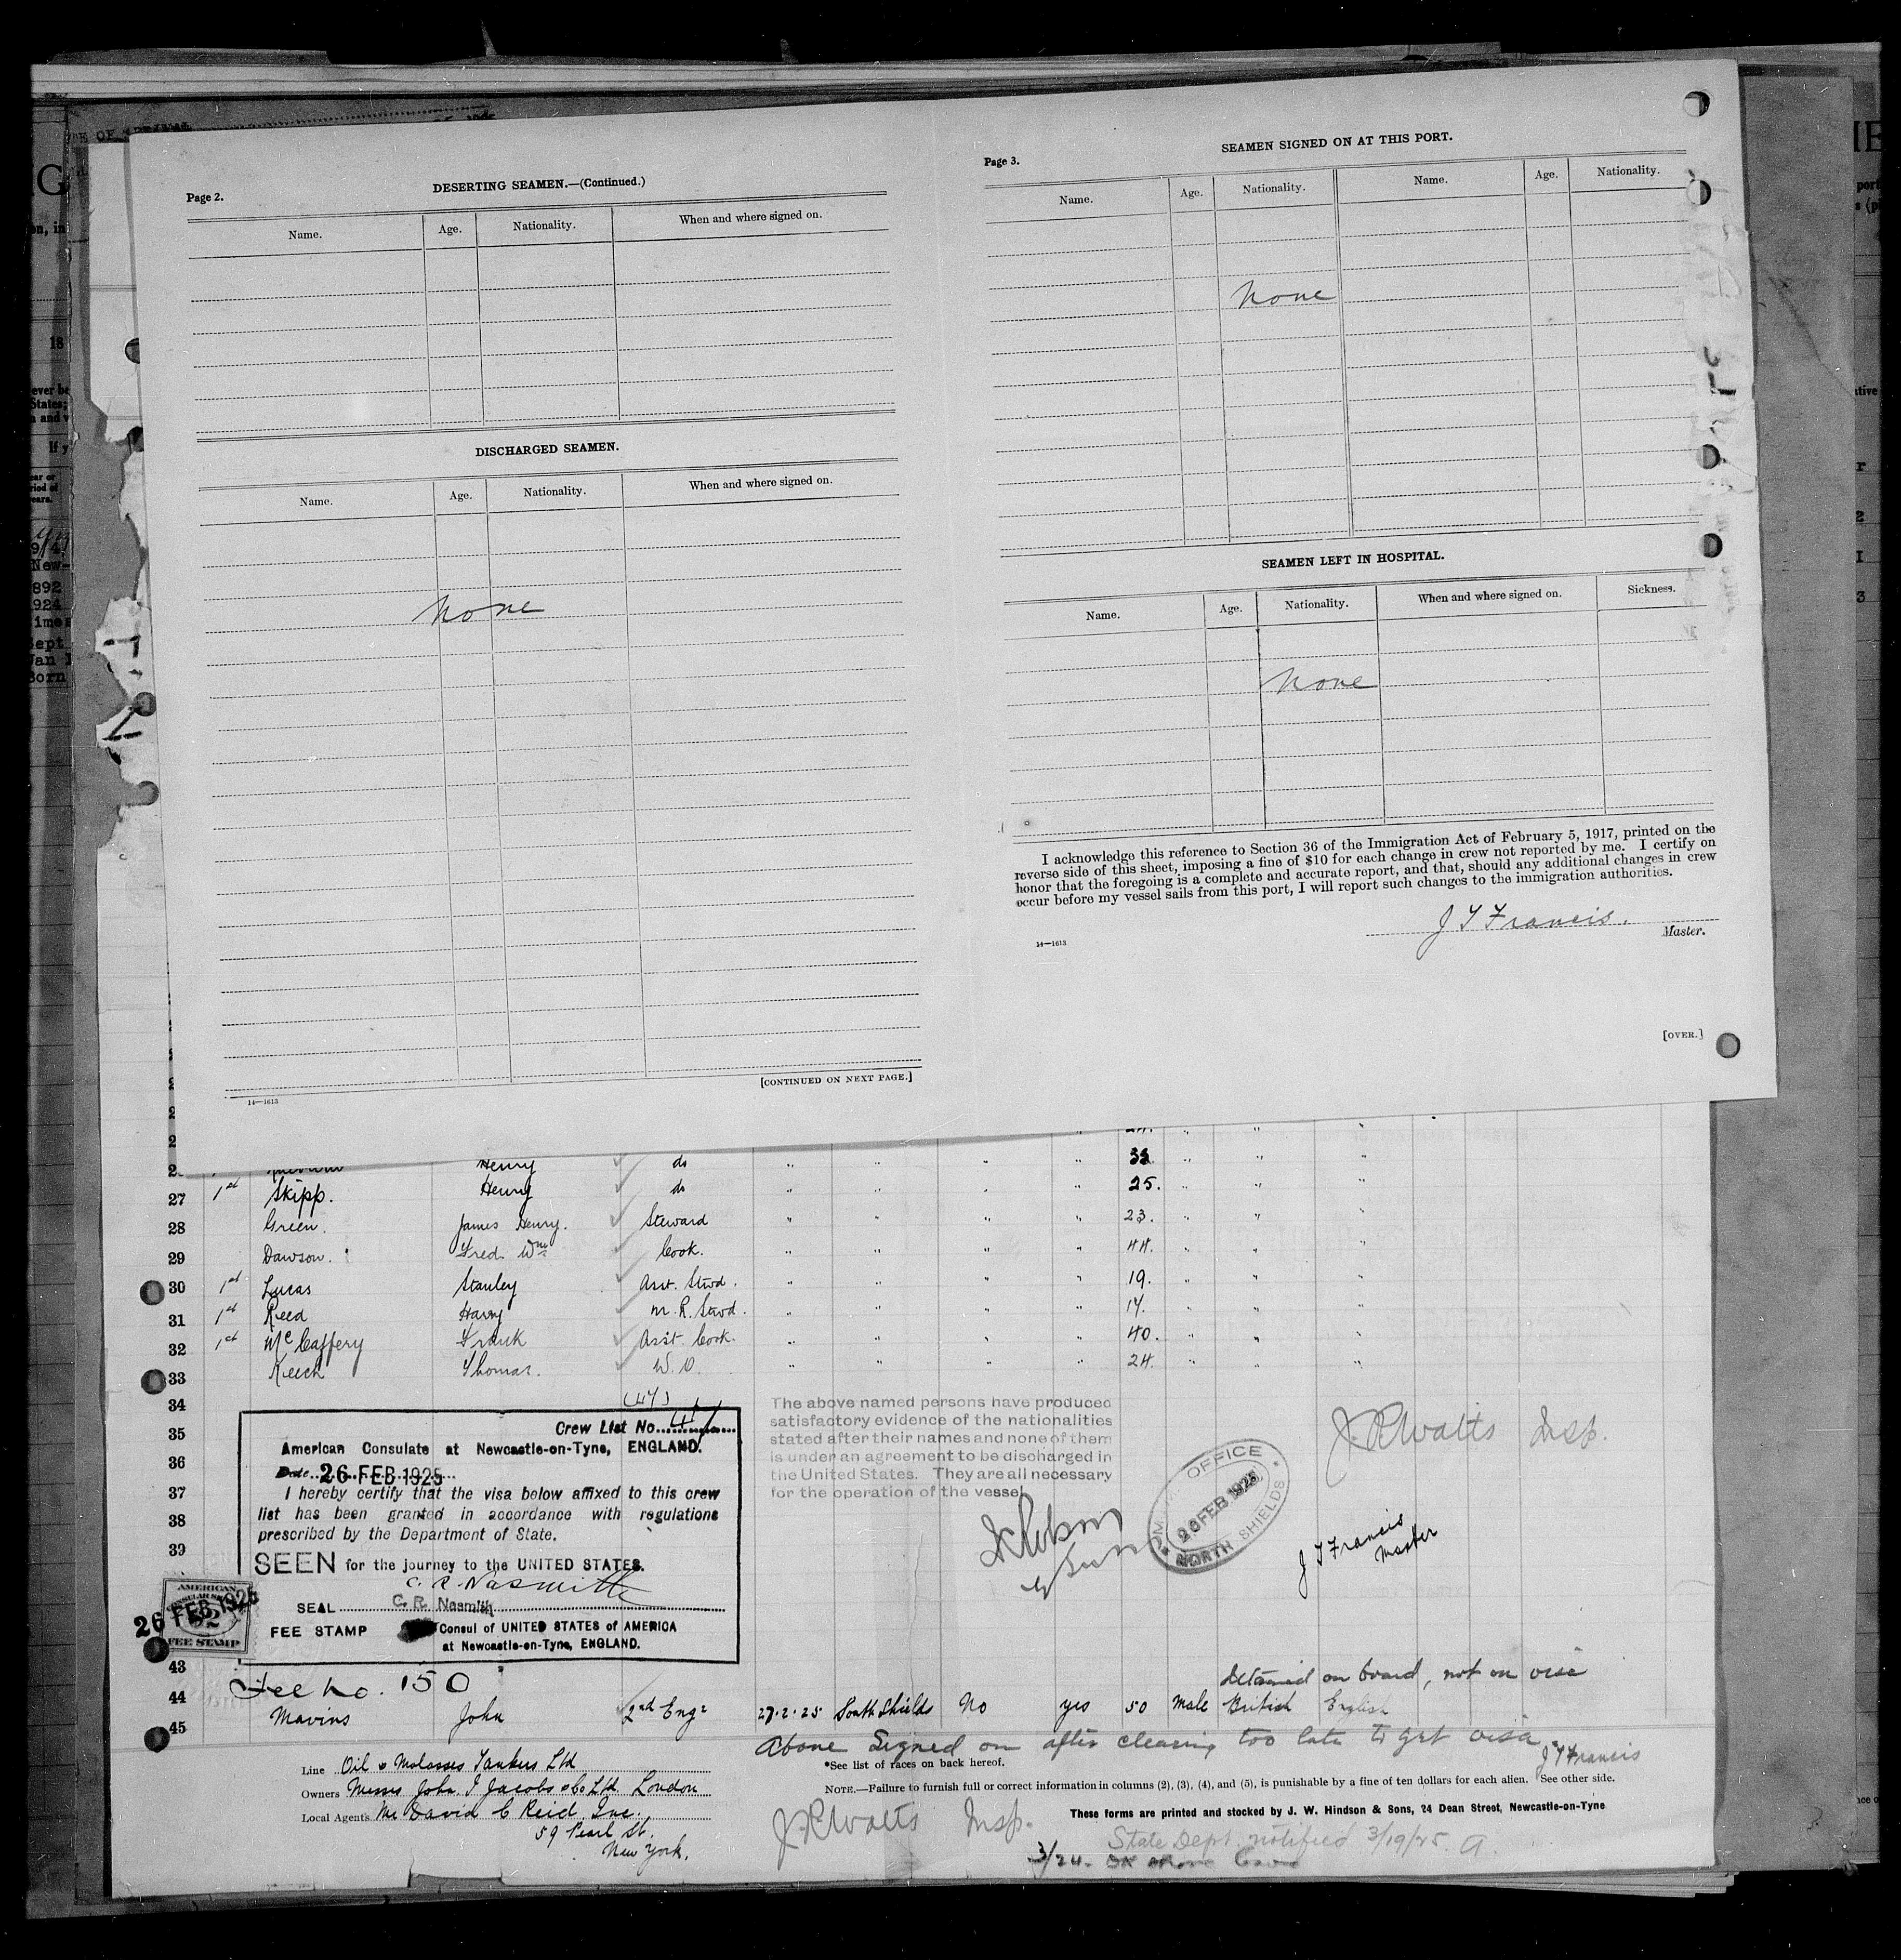 Page 2.
DESERTING SEAMEN.—(Continued.)
Name. Age. Nationality. When and where signed on.
DISCHARGED SEAMEN.
Name. Age. Nationality. When and where signed on.
None
[CONTINUED ON NEXT PAGE.]
14—1613
Page 3.
SEAMEN SIGNED ON AT THIS PORT.
Name. Age. Nationality. Name. Age. Nationality.
None
SEAMEN LEFT IN HOSPITAL.
Name. Age. Nationality. When and where signed on. Sickness.
None
I acknowledge this reference to Section 36 of the Immigration Act of February 5, 1917, printed on the
reverse side of this sheet, imposing a fine of $10 for each change in crew not reported by me. I certify on
honor that the foregoing is a complete and accurate report, and that, should any additional changes in crew
occur before my vessel sails from this port, I will report such changes to the immigration authorities.
J T Francis.
Master.
14—1613
[OVER.]
Henry do " " " " " "
27 1st Skipp. Henry do " " " " 25. " " "
28 Green. James Henry. Steward " " " " 23. " " "
29 Dawson. Fred Wm Cook. " " " " 44. " " "
30 1st Lucas Stanley Asst. Stwd. " " " " 19. " " "
31 1st Reed Harry M. R. Stwd. " " " " 17. " " "
32 1st McCaffery Frank Asst. Cook. " " " " 40. " " "
33 Keech Thomas. W.O. " " " " 24. " " "
34
35
36
37
38
39
43
44
45
Crew List No. 47
American Consulate at Newcastle-on-Tyne, ENGLAND.
Date 26 FEB 1925
I hereby certify that the visa below affixed to this crew
list has been granted in accordance with regulations
prescribed by the Department of State.
SEEN for the journey to the UNITED STATES.
C. R. Nasmith
SEAL C. R. Nasmith
FEE STAMP Consul of UNITED STATES of AMERICA
at Newcastle-on-Tyne, ENGLAND.
AMERICAN
CONSULAR SERVICE
26 FEB 1925
FEE STAMP
Fee No. 150
The above named persons have produced
satisfactory evidence of the nationalities
stated after their names and none of them
is under an agreement to be discharged in
the United States. They are all necessary
for the operation of the vessel
OFFICE
26 FEB 1925
NORTH SHIELDS
J. R. Watts Insp.
J T Francis
Master
detained on board, not on visa
Mavins John 2nd Engr 27.2.25 South Shields No yes 50 male British English
Above Signed on after clearing too late to get visa.
J T Francis
*See list of races on back hereof.
NOTE.—Failure to furnish full or correct information in columns (2), (3), (4), and (5), is punishable by a fine of ten dollars for each alien. See other side.
Line Oil & Molasses Tankers Ltd
Owners Messrs John I Jacobs & Co Ltd. London
Local Agents Mr David C Reid Inc.
59 Pearl St.
New York.
J. R. Watts Insp.
These forms are printed and stocked by J. W. Hindson & Sons, 24 Dean Street, Newcastle-on-Tyne
State Dept. notified 3/19/25. A.
3/24.